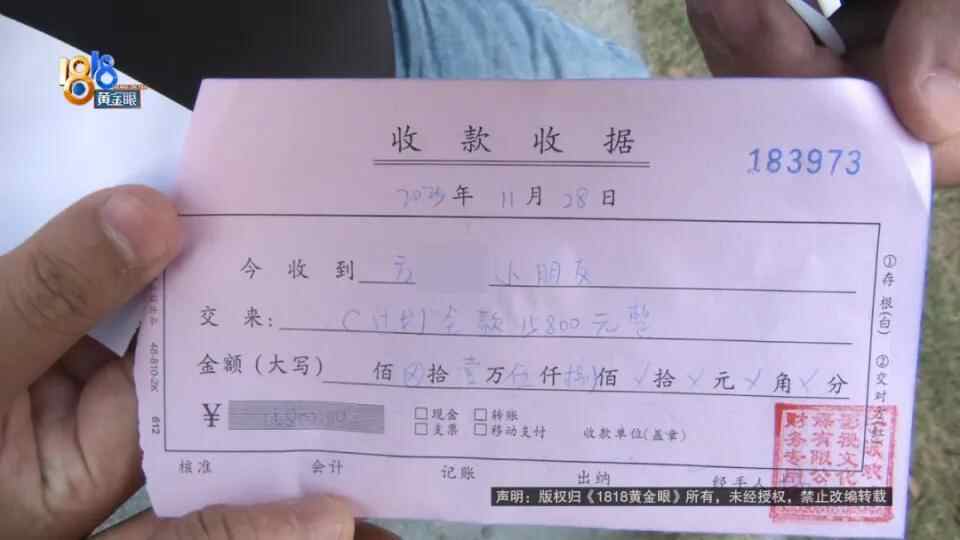 1818
黄金眼
收款收据
183973
2025年 11月 28日
今收到 小朋友
交来: C计划全款15800元整
金额(大写) 佰 拾壹万伍仟捌佰 拾 元 角 分
¥
现金 转账
支票 移动支付
收款单位(盖章)
核准 会计 记账 出纳 经手人
①存根(白) ②交对方(红)
48-810-2K 612
影视文化
有限公
财务专
声明:版权归《1818黄金眼》所有,未经授权,禁止改编转载